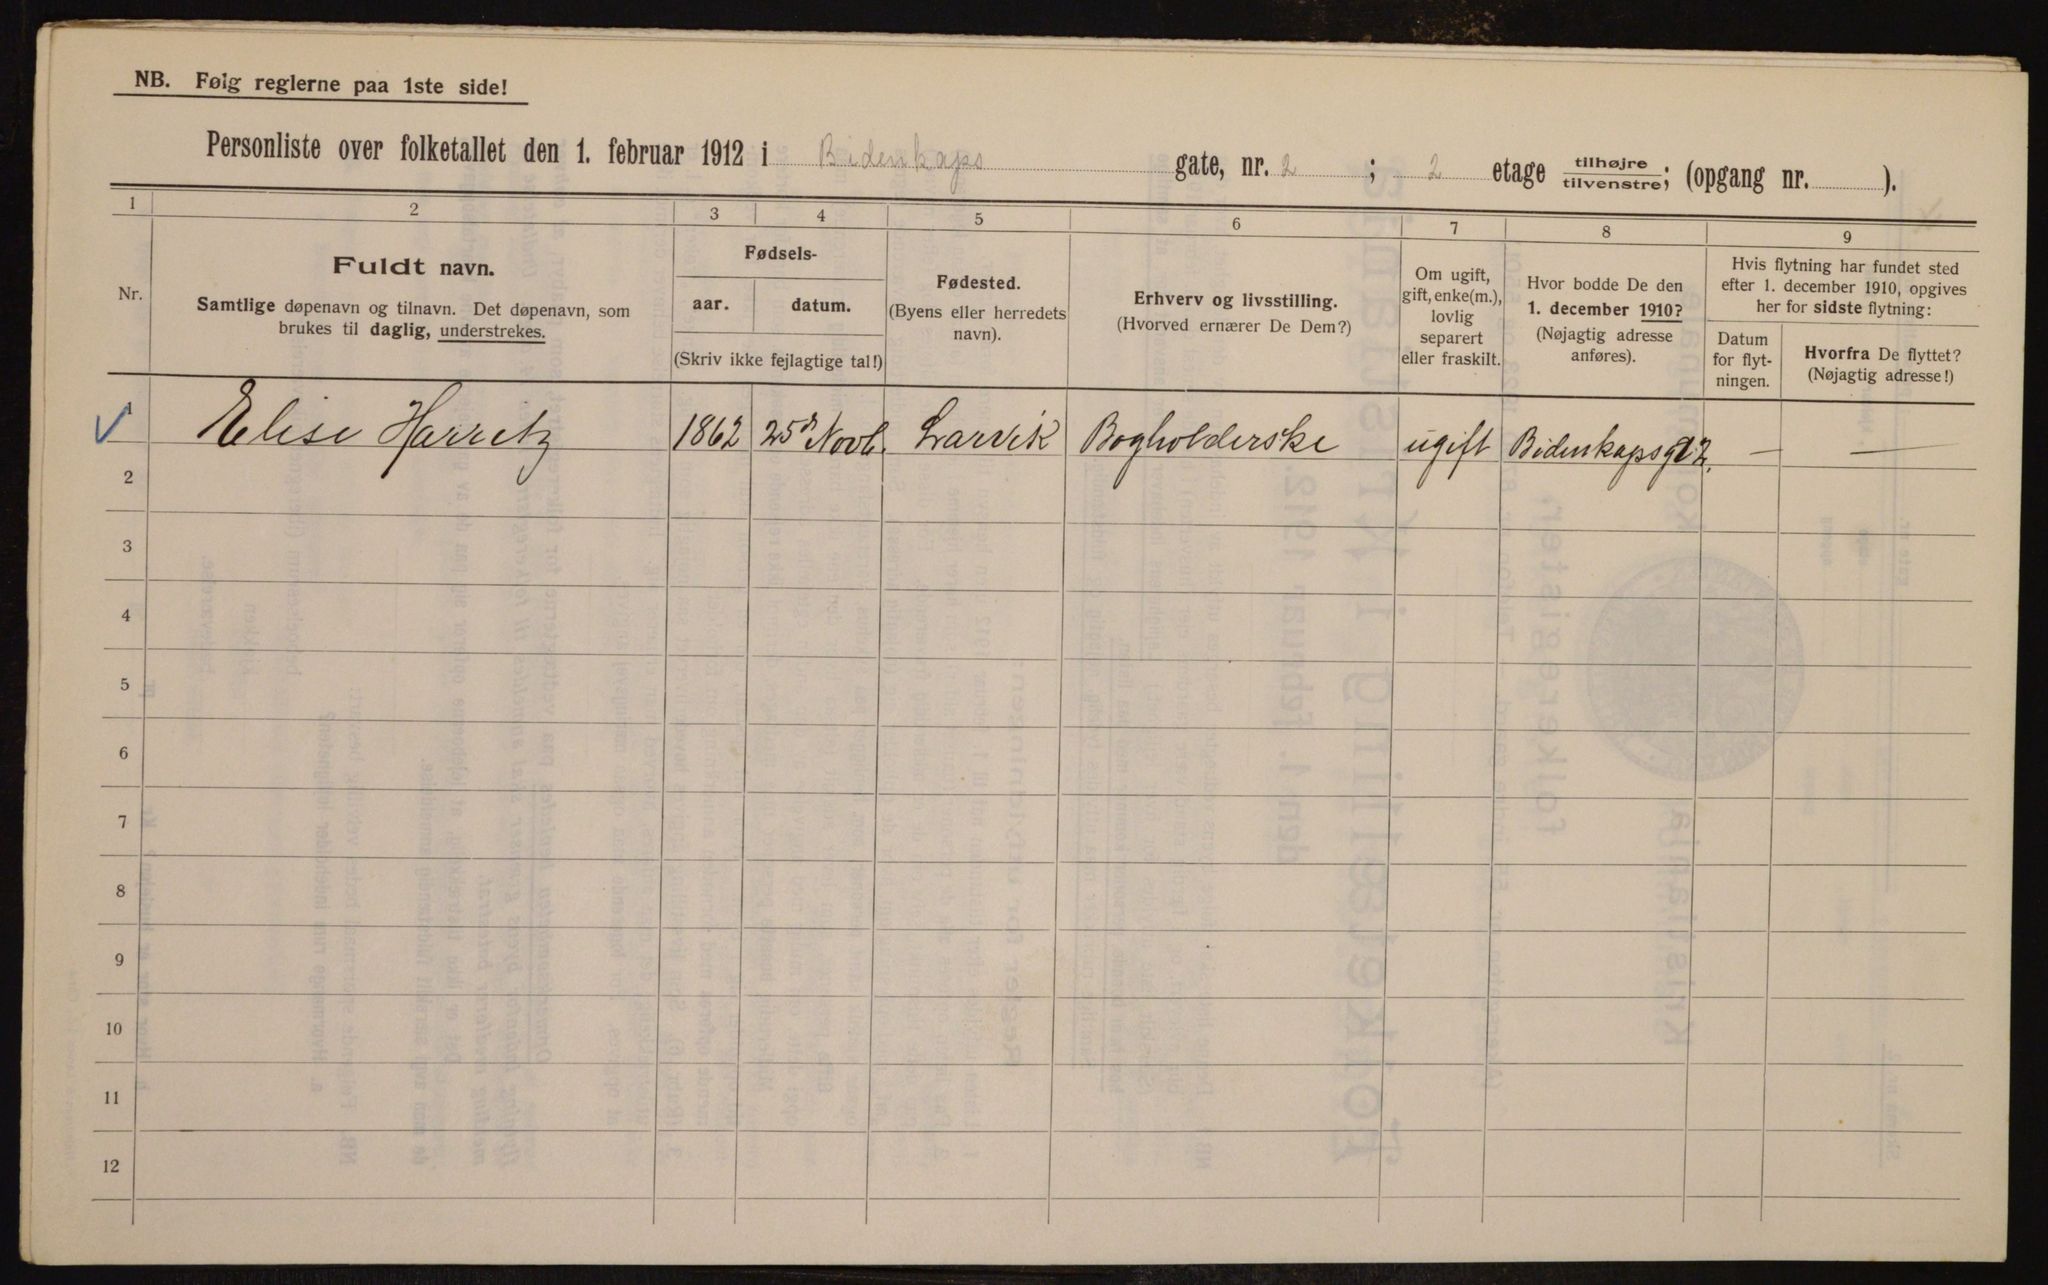 NB. Følg reglerne paa 1ste side!
Personliste over folketallet den 1. februar 1912 i Bidenkaps gate, nr. 2 ; 2 etage tilhøjre/tilvenstre; (opgang nr. ).
1 2 3 4 5 6 7 8 9
Nr.
Fuldt navn.
Samtlige døpenavn og tilnavn. Det døpenavn, som
brukes til daglig, understrekes.
Fødsels-
aar. datum.
(Skriv ikke fejlagtige tal!)
Fødested.
(Byens eller herredets
navn).
Erhverv og livsstilling.
(Hvorved ernærer De Dem?)
Om ugift,
gift, enke(m.),
lovlig
separert
eller fraskilt.
Hvor bodde De den
1. december 1910?
(Nøjagtig adresse
anføres).
Hvis flytning har fundet sted
efter 1. december 1910, opgives
her for sidste flytning:
Datum
for flyt-
ningen.
Hvorfra De flyttet?
(Nøjagtig adresse!)
1 Elise Harritz 1862 25d Novb. Larvik Bogholderske ugift Bidenkapsg 2. — —
2
3
4
5
6
7
8
9
10
11
12